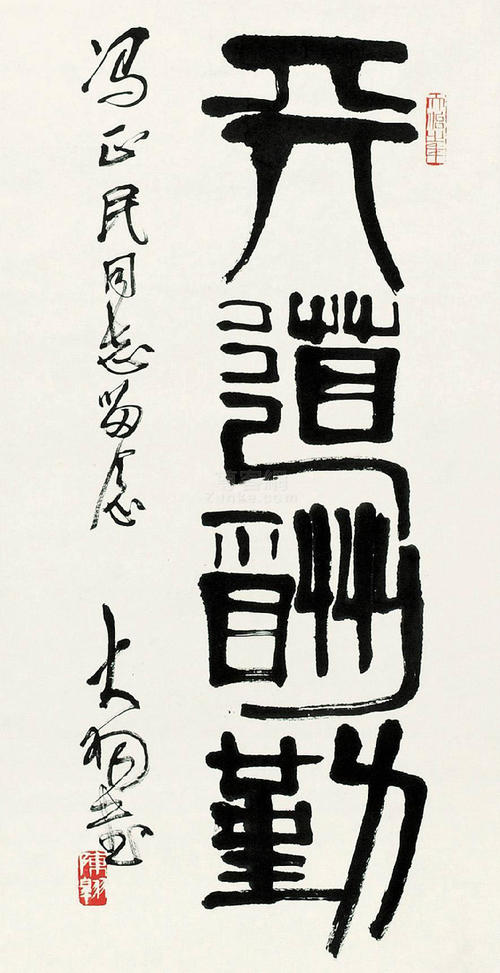 天道酬勤
冯正民同志留念
大羽书
陳翱